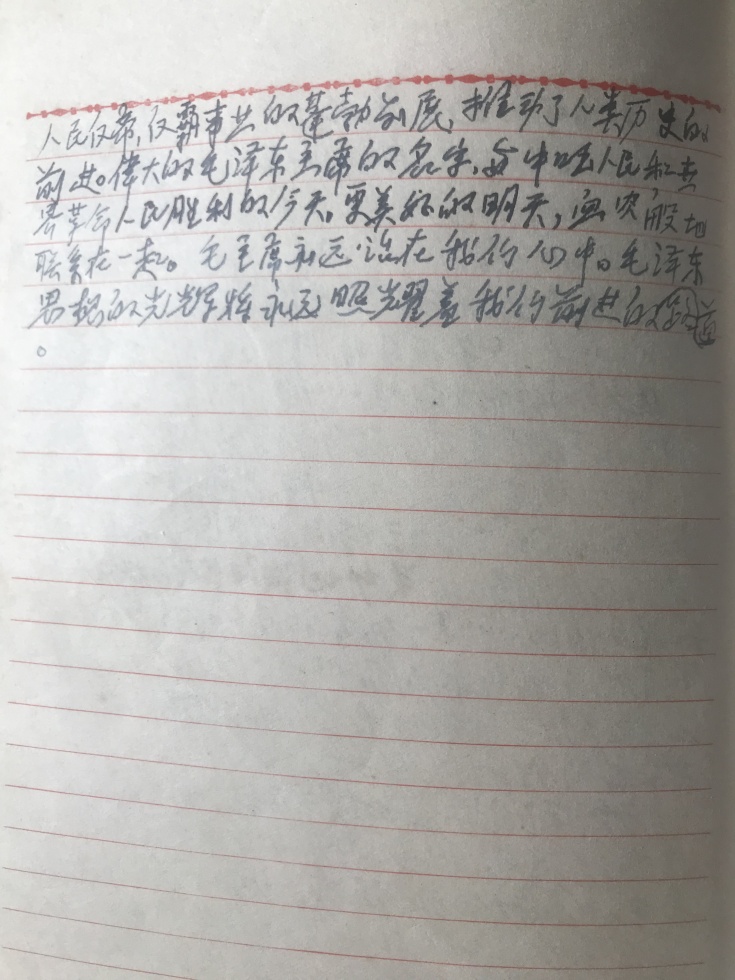 人民反帝,反霸事业的蓬勃发展,推动了人类历史的
前进。偉大的毛泽东主席的名字,与中国人民和世
界革命人民胜利的今天,更美好的明天,血肉般地
联系在一起。毛主席永远活在我们心中。毛泽东
思想的光辉将永远照耀着我们前进的道
。